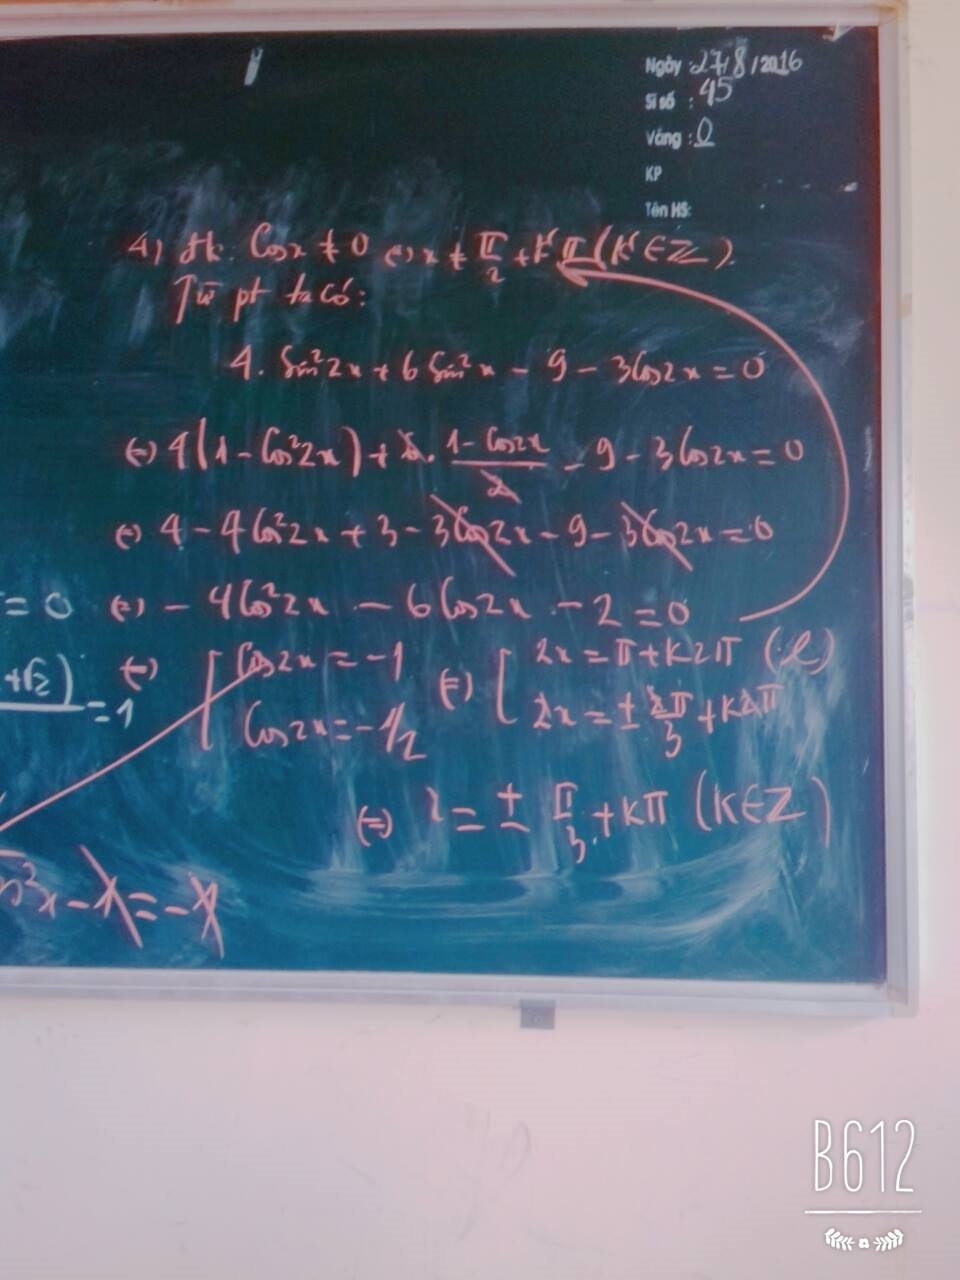 Ngày : 27/8/2016
Sĩ số : 45
Vắng : 0
KP
Tên HS:
4) đk: Cosx ≠ 0 <=> x ≠ π/2 + kπ (K∈Z).
Từ pt ta có:
4. Sin²2x + 6 Sin²x - 9 - 3Cos2x = 0
(=) 4(1 - Cos²2x) + 6. (1 - Cos2x)/2 - 9 - 3Cos2x = 0
(=) 4 - 4Cos²2x + 3 - 3Cos2x - 9 - 3Cos2x = 0
= 0 (=) - 4Cos²2x - 6Cos2x - 2 = 0
+√2) = 1
(=) [ Cos2x = -1
Cos2x = -1/2
(=) [ 2x = π + K2π (l)
2x = ± 2π/3 + K2π
(=) x = ± π/3 + Kπ (K∈Z)
²x - x = - x
B612